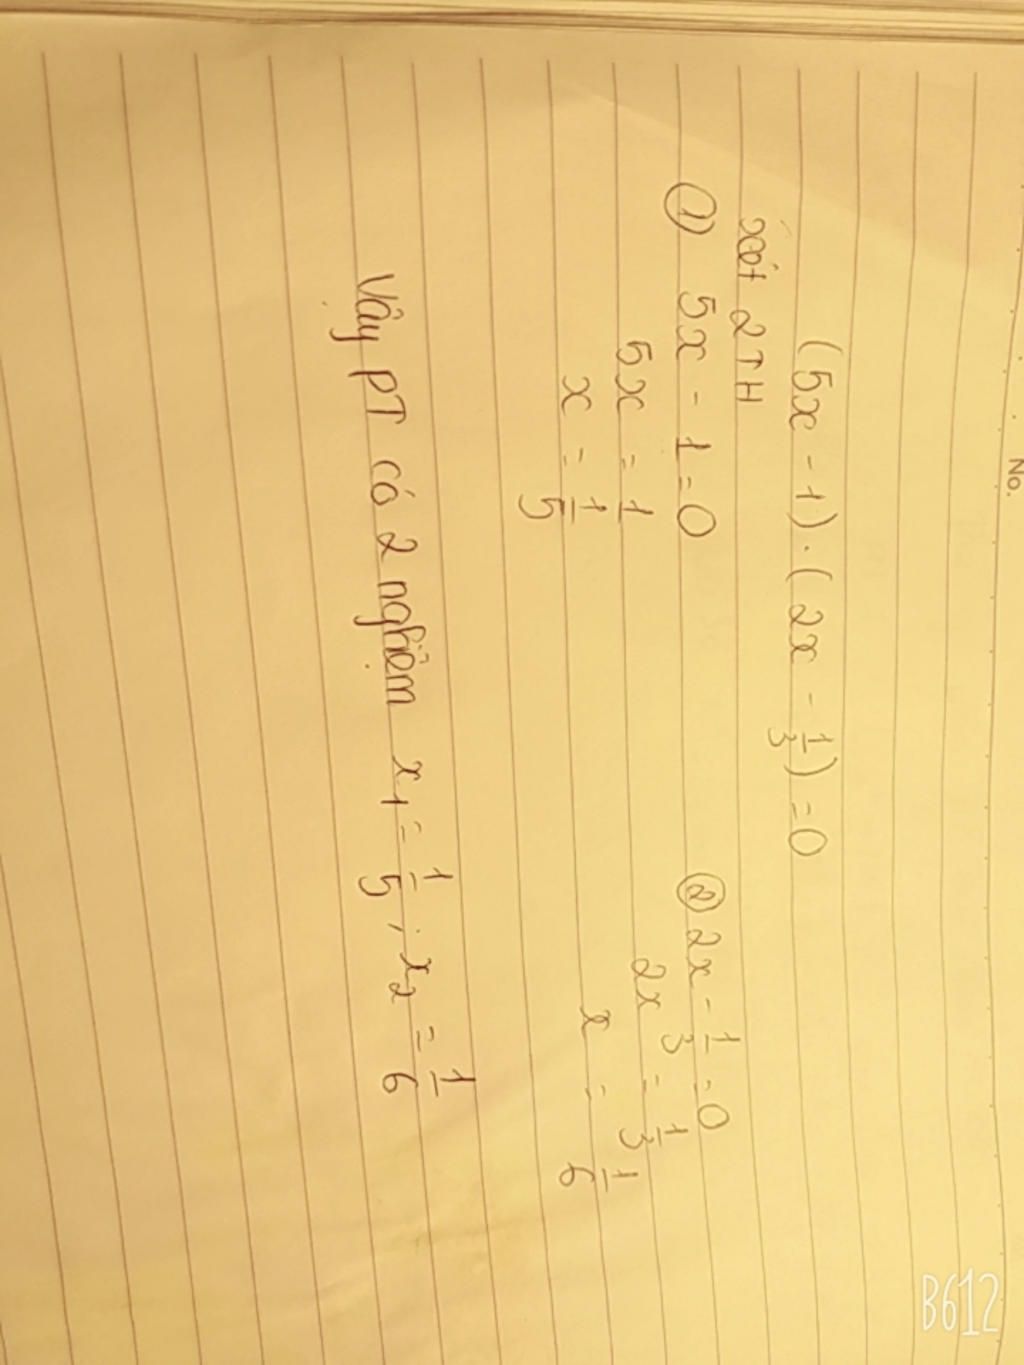 No.
(5x - 1) . (2x - 1/3) = 0
xét 2TH
① 5x - 1 = 0
5x = 1
x = 1/5
② 2x - 1/3 = 0
2x = 1/3
x = 1/6
Vậy PT có 2 nghiệm x1 = 1/5 ; x2 = 1/6
B612